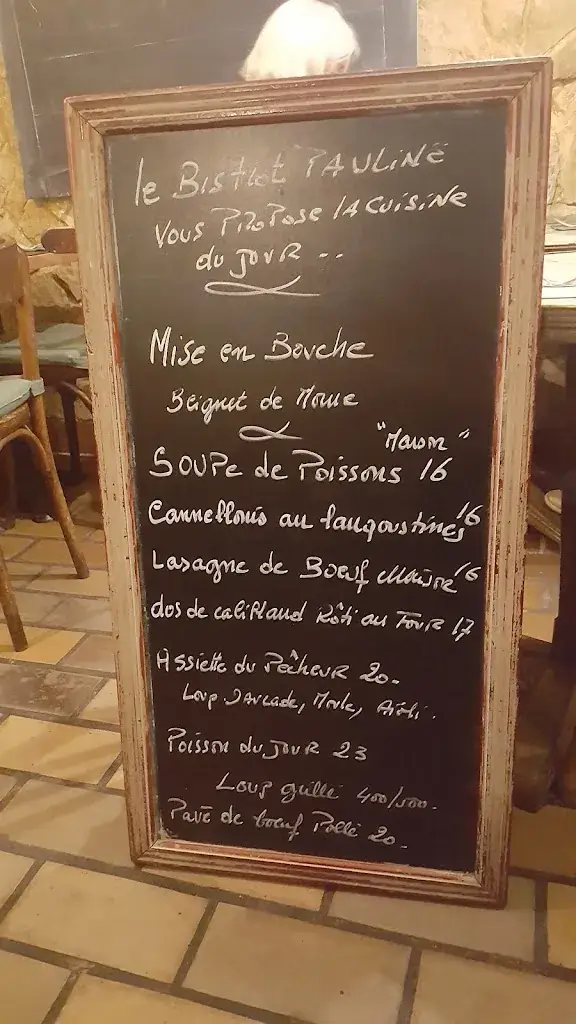 le Bistrot PAULINE
VOUS PROPOSE LA CUISINE
du JOUR ..
Mise en Bouche
Beignet de Morue
"Maison"
SOUPe de Poissons 16
Cannellonis au langoustines 16
Lasagne de Boeuf Maison 16
dos de cabillaud Rôti au Four 17
Assiette du Pêcheur 20.
Loup, Morue, Aïoli.
Poisson du JOUR 23
Loup grillé 400/500.
Pavé de boeuf Poêlé 20.